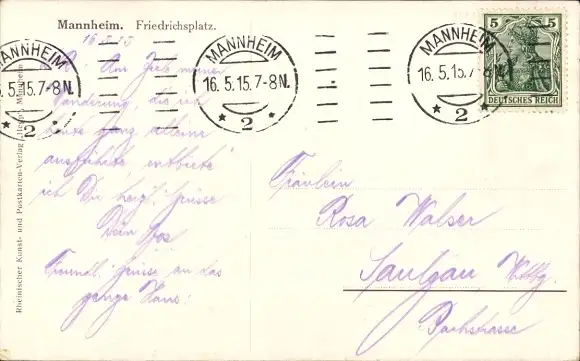 Mannheim. Friedrichsplatz.
16.5.15
MANNHEIM
16.5.15.7-8N.
* 2 *
MANNHEIM
16.5.15.7-8N.
* 2 *
MANNHEIM
16.5.15.7-8N.
* 2 *
5 5
DEUTSCHES REICH
Rheinischer Kunst- und Postkarten-Verlag
Mannheim
Am Ziel meiner
Wanderung, die ich
heute ganz alleine
ausführte, entbiete
ich Dir herzl. Grüsse
Dein
Freundl. Grüsse an das
ganze Haus.
Fräulein
Rosa Walser
Saulgau, Wttbg.
Bachstrasse